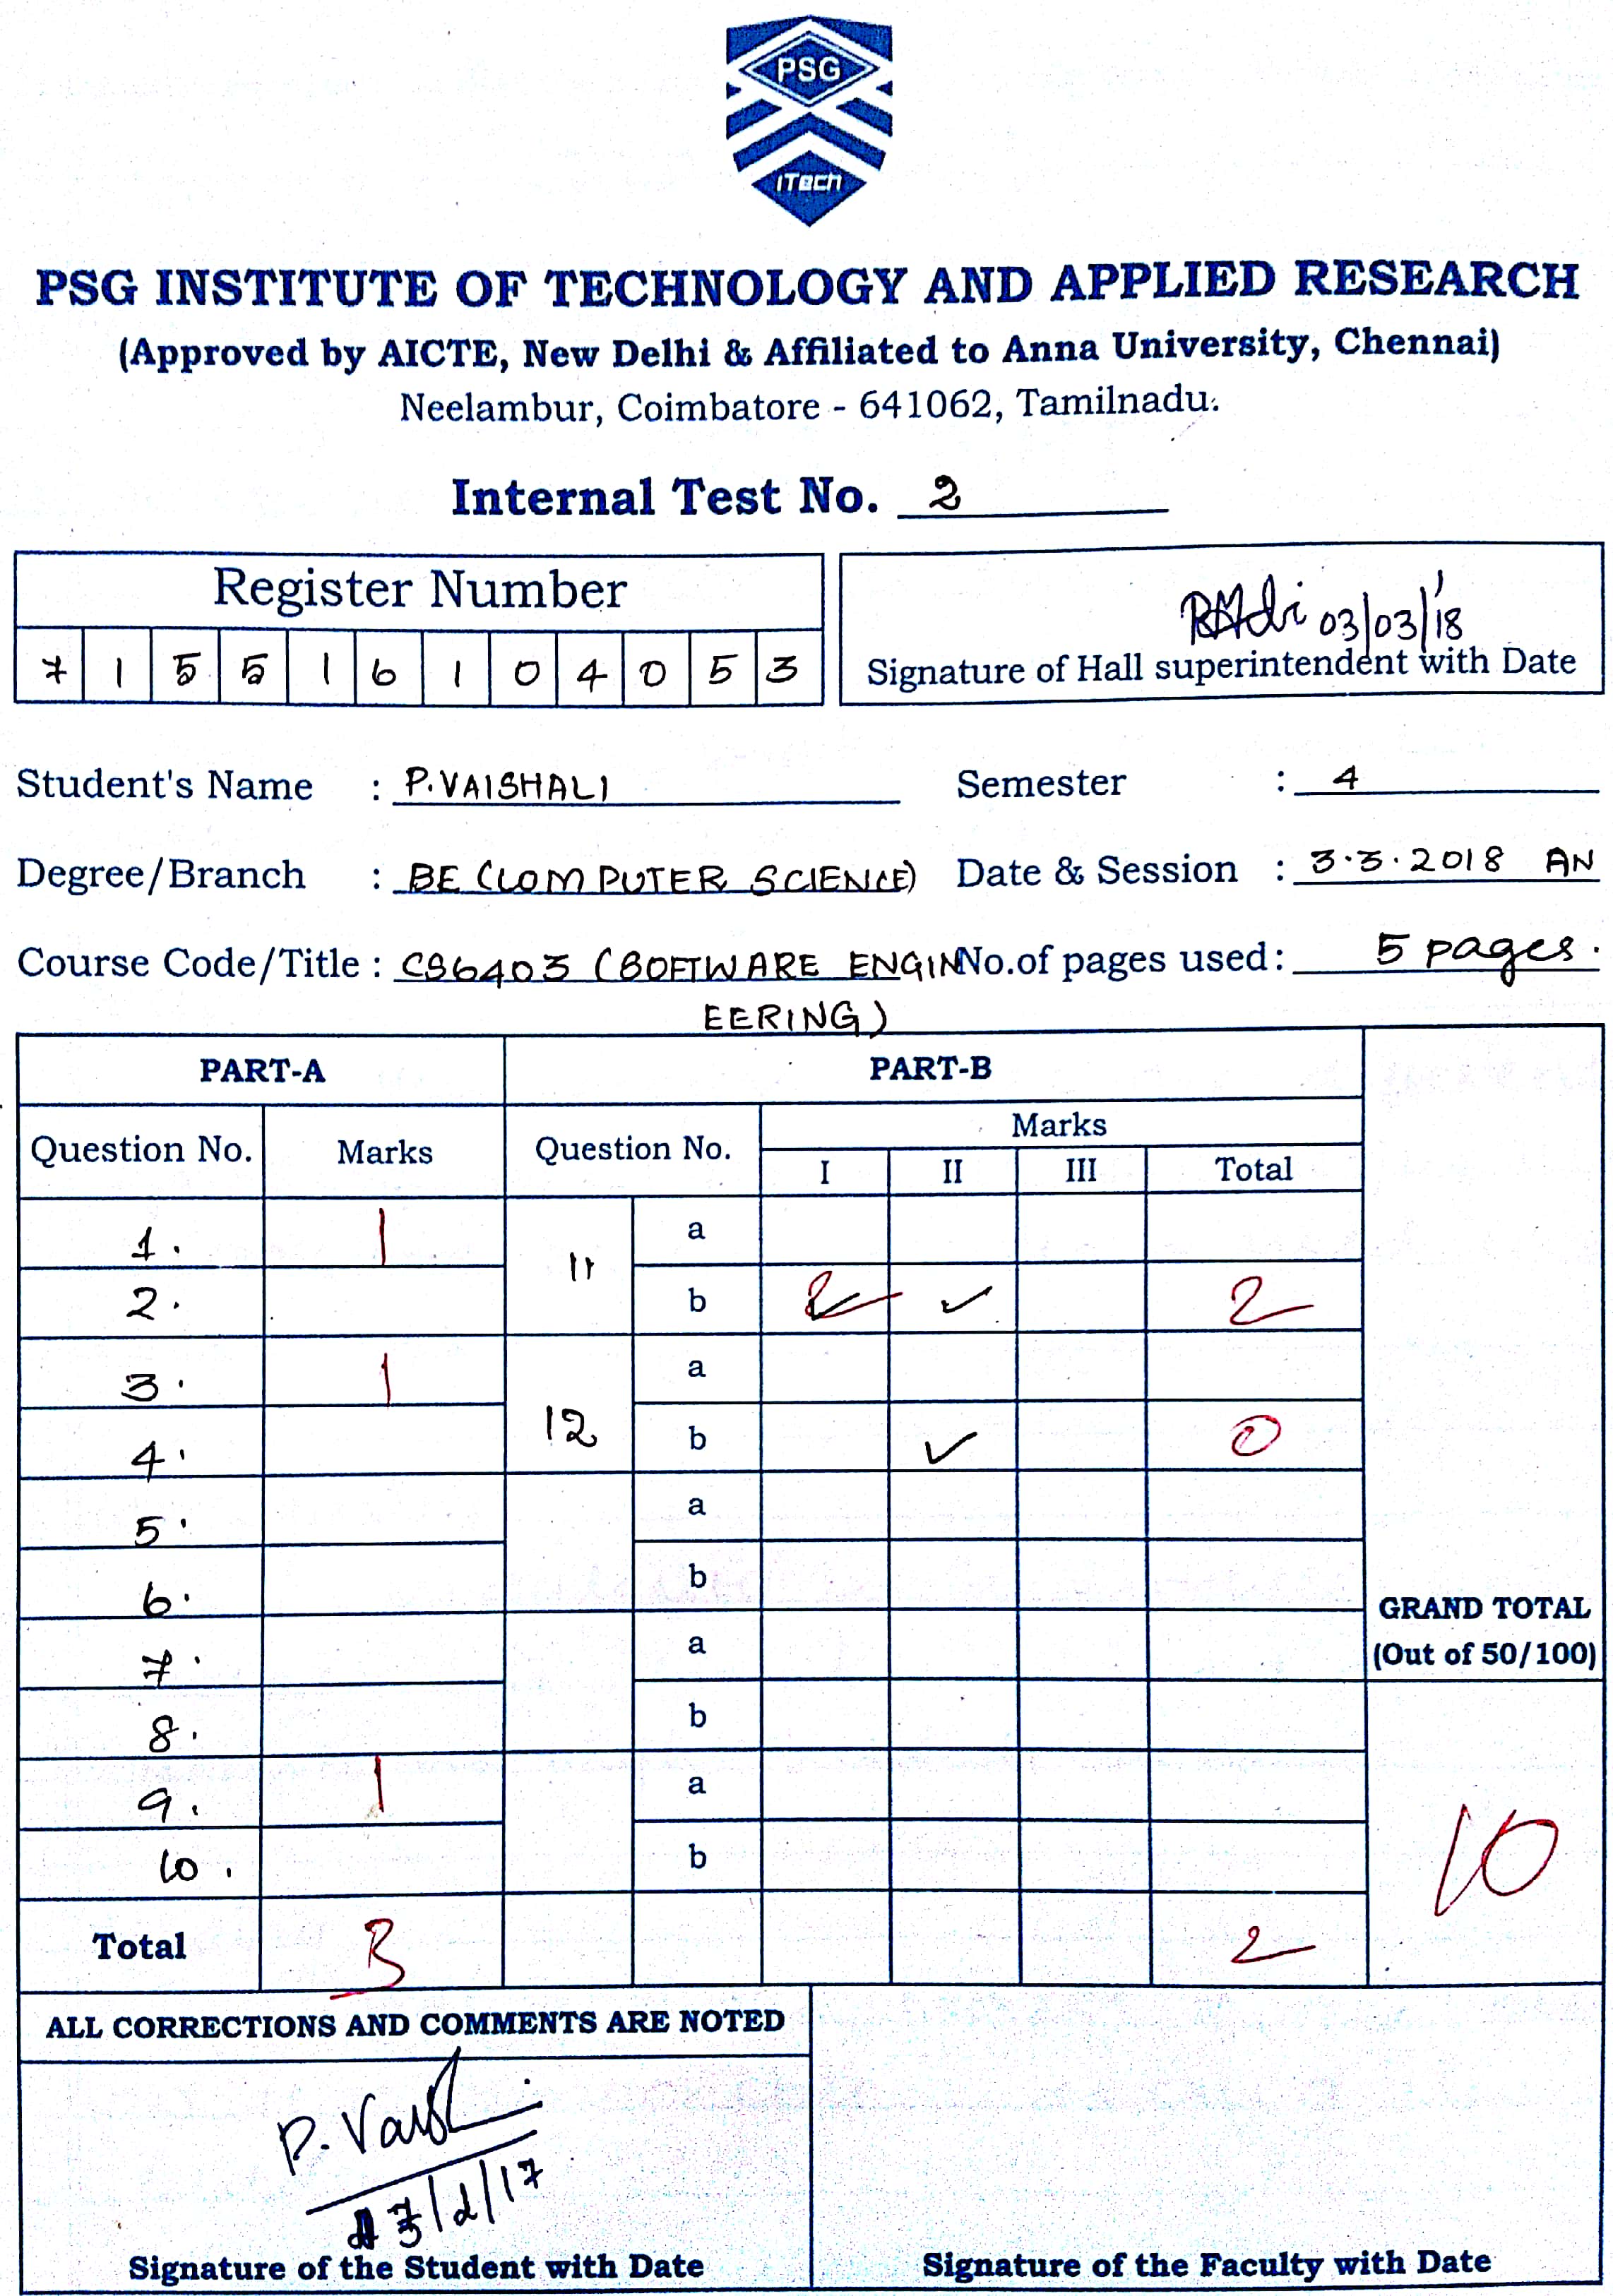 PSG
iTech
PSG INSTITUTE OF TECHNOLOGY AND APPLIED RESEARCH
(Approved by AICTE, New Delhi & Affiliated to Anna University, Chennai)
Neelambur, Coimbatore - 641062, Tamilnadu.
Internal Test No. 2
Register Number
7 1 5 5 1 6 1 0 4 0 5 3
03/03/18
Signature of Hall superintendent with Date
Student's Name : P.VAISHALI Semester : 4
Degree/Branch : BE (COMPUTER SCIENCE) Date & Session : 3.3.2018 AN
Course Code/Title : CS6403 (SOFTWARE ENGIN No.of pages used: 5 pages.
EERING)
PART-A PART-B
Question No. Marks Question No. Marks
I II III Total
1. 1 11 a
2. b 2 ✓ 2
3. 1 12 a
4. b ✓ 0
5. a
6. b
7. a
8. b
9. 1 a
10. b
GRAND TOTAL
(Out of 50/100)
10
Total 3 2
ALL CORRECTIONS AND COMMENTS ARE NOTED
P. Vaish
/2/17
Signature of the Student with Date
Signature of the Faculty with Date